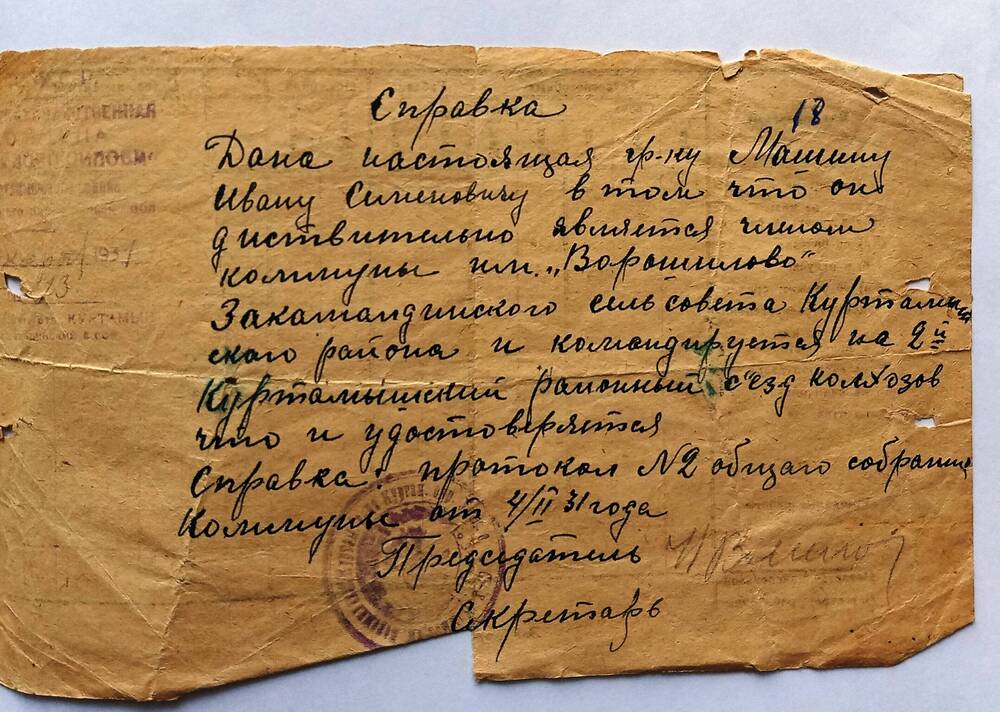 Справка
18
Дана настоящая гр-ну Машину
Ивану Сименовичу в том что он
диствительно является членом
коммуны им. „Ворошилово"
Закамандинского сельсовета Куртамыш
ского района и командируется на 2й
Куртамышский районный с'езд колхозов
что и удостоверяется
Справка: протокол №2 общаго собрание
Коммуны от 4/II 31 года
Председатель
Секретарь